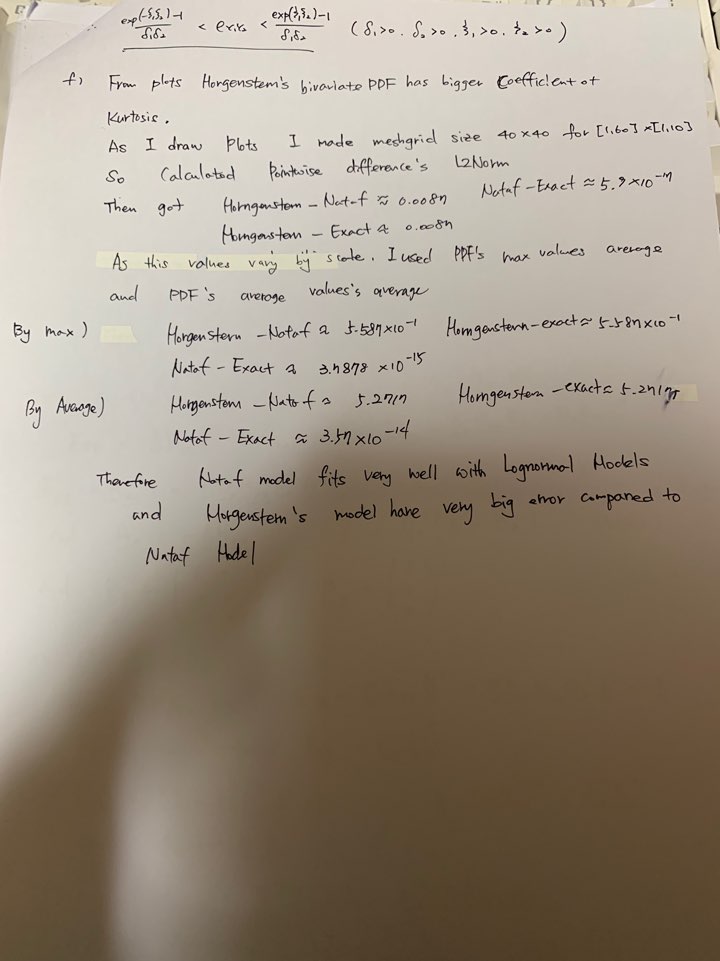 exp(-ξ₁ξ₂)-1 / δ₁δ₂ < ρx₁x₂ < exp(ξ₁ξ₂)-1 / δ₁δ₂ (δ₁>0. δ₂>0. ξ₁>0. ξ₂>0)
f) From plots Morgenstern's bivariate PDF has bigger Coefficient of
Kurtosis.
As I draw Plots I made meshgrid size 40×40 for [1,60]×[1,10]
So Calculated Pointwise difference's L2Norm
Then got Morngenstern - Nataf ≈ 0.0084 Nataf-Exact ≈ 5.9×10⁻¹⁷
Morngenstern - Exact ≈ 0.0084
As this values vary by scale. I used PDF's max values average
and PDF's average values's average
By max) Morgenstern - Nataf ≈ 5.584×10⁻¹ Morngenstern-exact ≈ 5.584×10⁻¹
Nataf - Exact ≈ 3.4878 ×10⁻¹⁵
By Average) Morngenstern - Nataf ≈ 5.2717 Morngenstern - exact ≈
Nataf - Exact ≈ 3.57×10⁻¹⁴
Therefore Nataf model fits very well with Lognormal Models
and Morgenstern's model have very big error compared to
Nataf Model